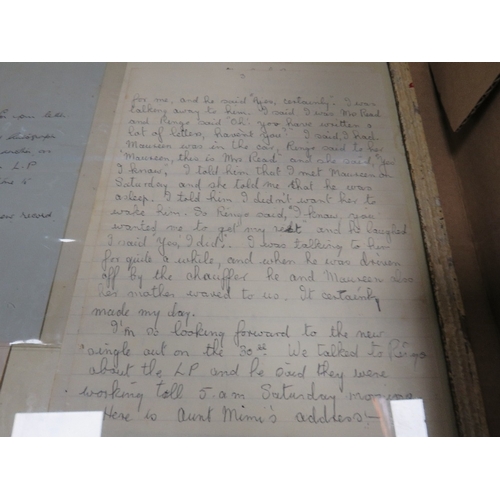 for your letter
newspaper
written on
L.P
new record
3
for me, and he said "Yes, certainly". I was
talking away to him. I said, I was Mrs Read
and Ringo said "Oh you have written a
lot of letters, haven't you." I said, I had.
Maureen was in the car, Ringo said to her
"Maureen, this is Mrs Read" and she said, "yes
I know, I told him that I met Maureen on
Saturday and she told me that he was
asleep. I told him I didn't want her to
wake him. So Ringo said, "I know, you
wanted me to get my rest" and he laughed
I said Yes, I did". I was talking to him
for quite a while, and when he was driven
off by the chauffer he and Maureen also
her mother waved to us. It certainly
made my day.
I'm so looking forward to the new
single out on the 30th. We talked to Ringo
about the LP and he said they were
working till 5.am Saturday morning
Here is Aunt Mimi's address:-